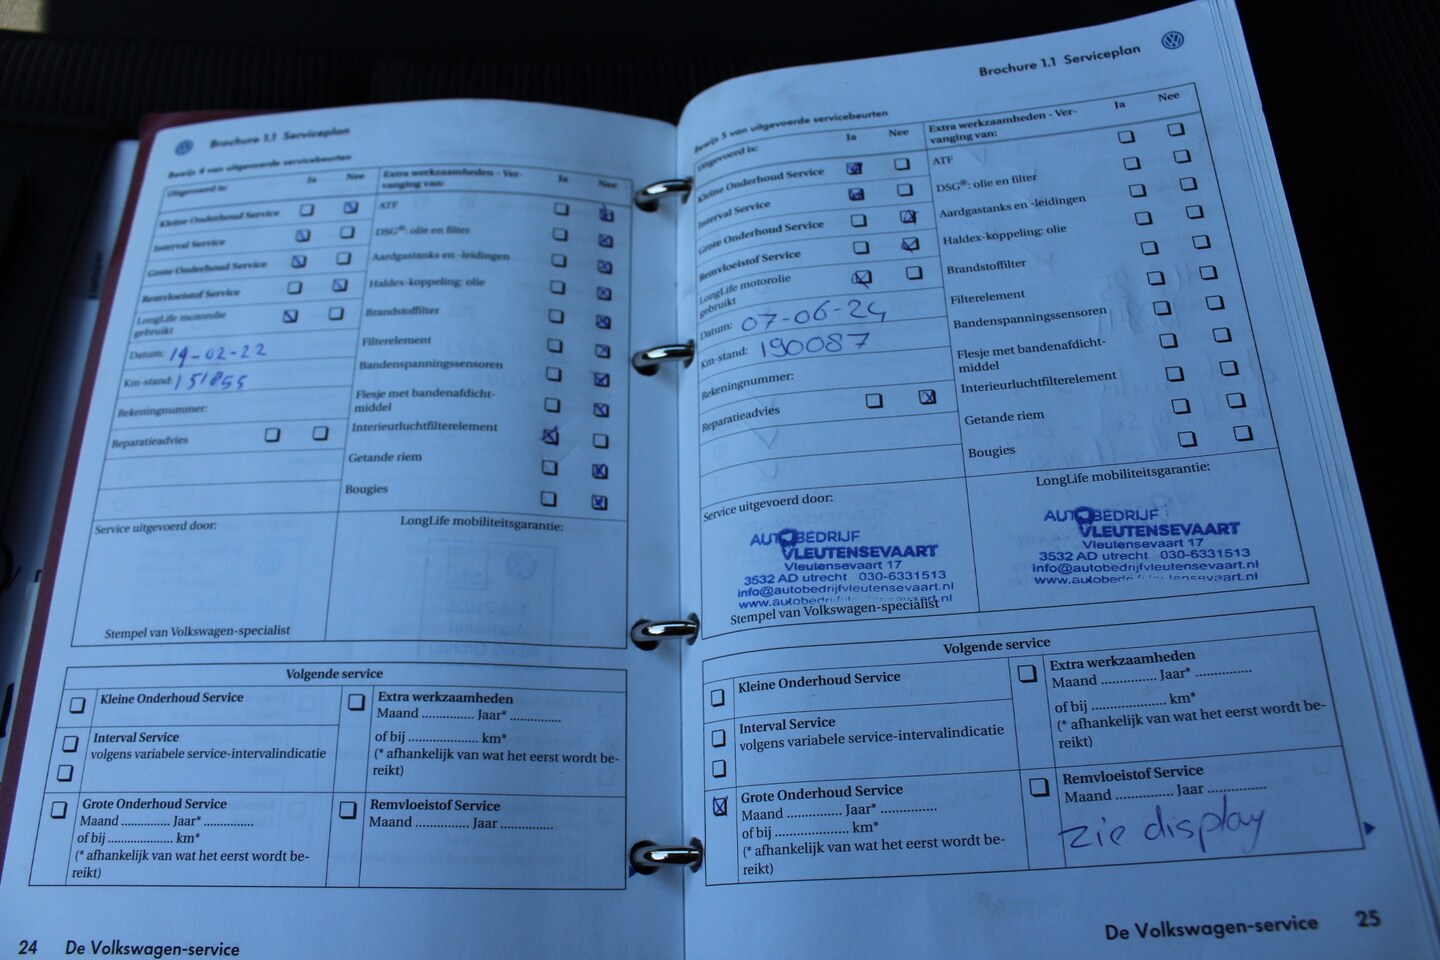 Brochure 1.1 Serviceplan
Bewijs 4 van uitgevoerde servicebeurten
Uitgevoerd is:
Ja
Nee
Extra werkzaamheden - Ver-
vanging van:
Ja
Nee
Kleine Onderhoud Service
Interval Service
Grote Onderhoud Service
Remvloeistof Service
LongLife motorolie
gebruikt
Datum: 19-02-22
Km-stand: 151855
Rekeningnummer:
Reparatieadvies
ATF
DSG®: olie en filter
Aardgastanks en -leidingen
Haldex-koppeling: olie
Brandstoffilter
Filterelement
Bandenspanningssensoren
Flesje met bandenafdicht-
middel
Interieurluchtfilterelement
Getande riem
Bougies
Service uitgevoerd door:
LongLife mobiliteitsgarantie:
Stempel van Volkswagen-specialist
Volgende service
Kleine Onderhoud Service
Interval Service
volgens variabele service-intervalindicatie
Grote Onderhoud Service
Maand .............. Jaar* ..............
of bij ................... km*
(* afhankelijk van wat het eerst wordt be-
reikt)
Extra werkzaamheden
Maand .............. Jaar* ..............
of bij .................... km*
(* afhankelijk van wat het eerst wordt be-
reikt)
Remvloeistof Service
Maand ............... Jaar ..............
24 De Volkswagen-service
Brochure 1.1 Serviceplan
Bewijs 5 van uitgevoerde servicebeurten
Uitgevoerd is:
Ja
Nee
Extra werkzaamheden - Ver-
vanging van:
Ja
Nee
Kleine Onderhoud Service
Interval Service
Grote Onderhoud Service
Remvloeistof Service
LongLife motorolie
gebruikt
Datum: 07-06-24
Km-stand: 190087
Rekeningnummer:
Reparatieadvies
ATF
DSG®: olie en filter
Aardgastanks en -leidingen
Haldex-koppeling: olie
Brandstoffilter
Filterelement
Bandenspanningssensoren
Flesje met bandenafdicht-
middel
Interieurluchtfilterelement
Getande riem
Bougies
Service uitgevoerd door:
AUTOBEDRIJF
VLEUTENSEVAART
Vleutensevaart 17
3532 AD utrecht 030-6331513
info@autobedrijfvleutensevaart.nl
www.autobedrijfvleutensevaart.nl
Stempel van Volkswagen-specialist
LongLife mobiliteitsgarantie:
AUTOBEDRIJF
VLEUTENSEVAART
Vleutensevaart 17
3532 AD utrecht 030-6331513
info@autobedrijfvleutensevaart.nl
www.autobedrijfvleutensevaart.nl
Volgende service
Kleine Onderhoud Service
Interval Service
volgens variabele service-intervalindicatie
Grote Onderhoud Service
Maand .............. Jaar* ..............
of bij .................... km*
(* afhankelijk van wat het eerst wordt be-
reikt)
Extra werkzaamheden
Maand .............. Jaar* ..............
of bij .................... km*
(* afhankelijk van wat het eerst wordt be-
reikt)
Remvloeistof Service
Maand ............... Jaar ..............
zie display
De Volkswagen-service 25